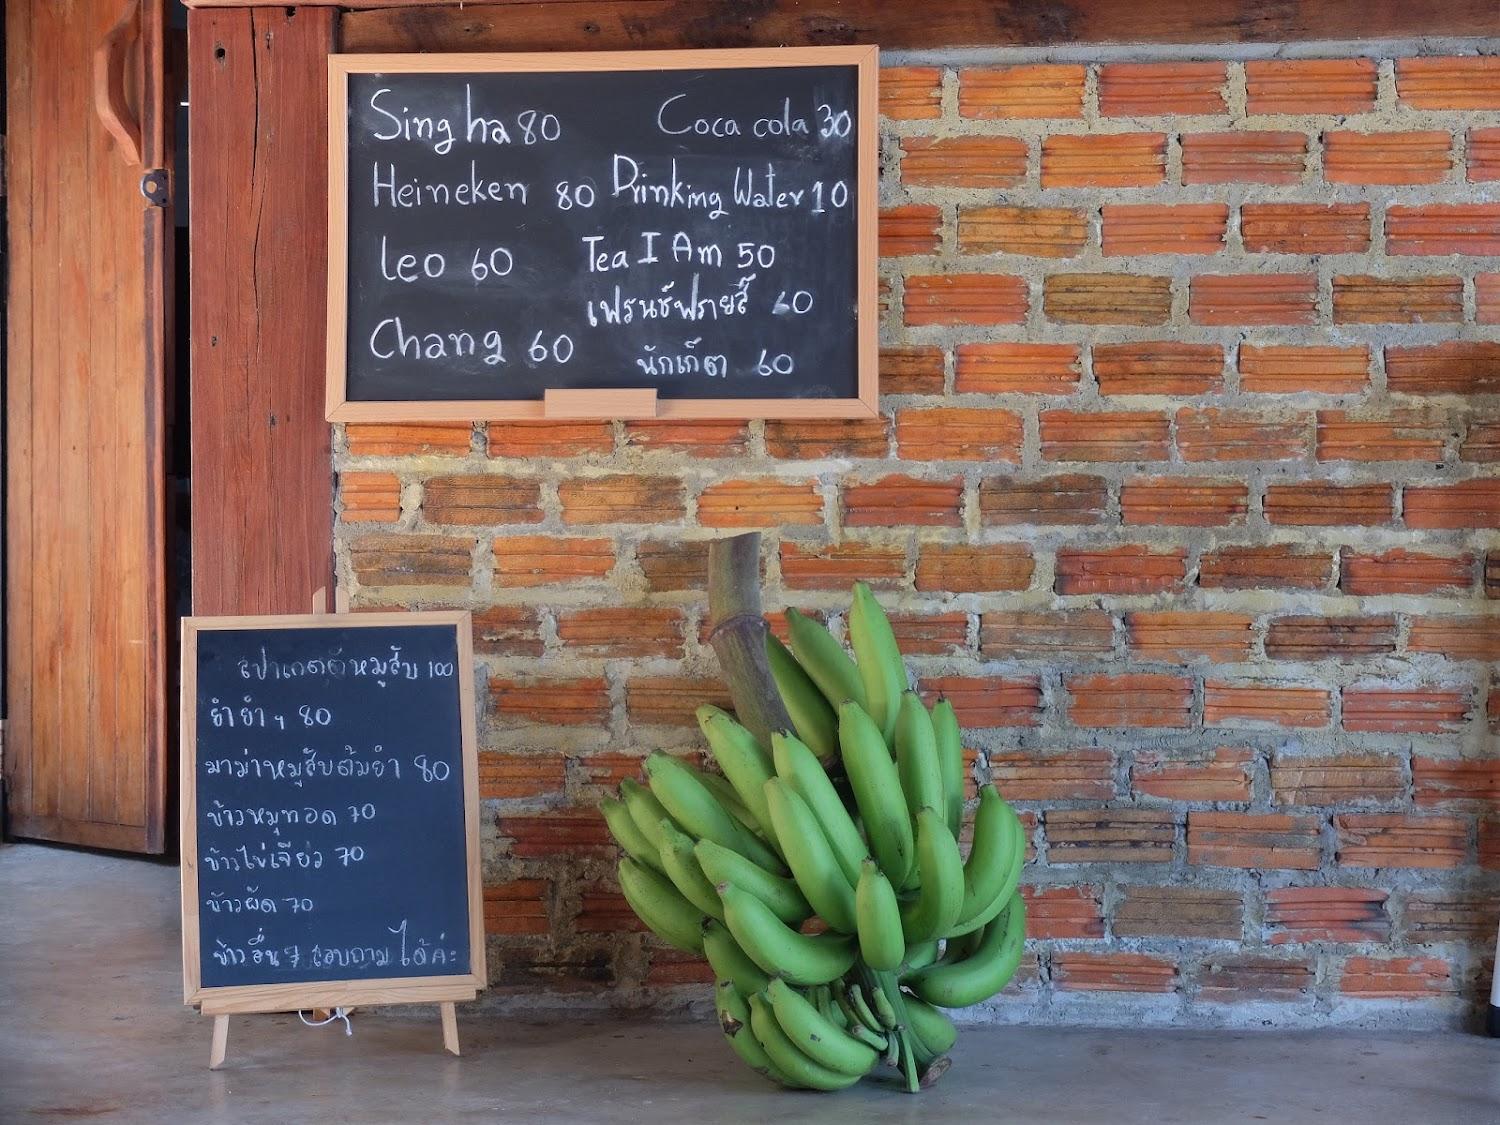 Singha 80
Heineken 80
Leo 60
Chang 60
Coca cola 30
Drinking Water 10
Tea I Am 50
เฟรนช์ฟรายส์ 60
นักเก็ต 60
สปาเกตตี้หมูสับ 100
ยำยำๆ 80
มาม่าหมูสับต้มยำ 80
ข้าวหมูทอด 70
ข้าวไข่เจียว 70
ข้าวผัด 70
ข้าวอื่นๆ สอบถามได้ค่ะ